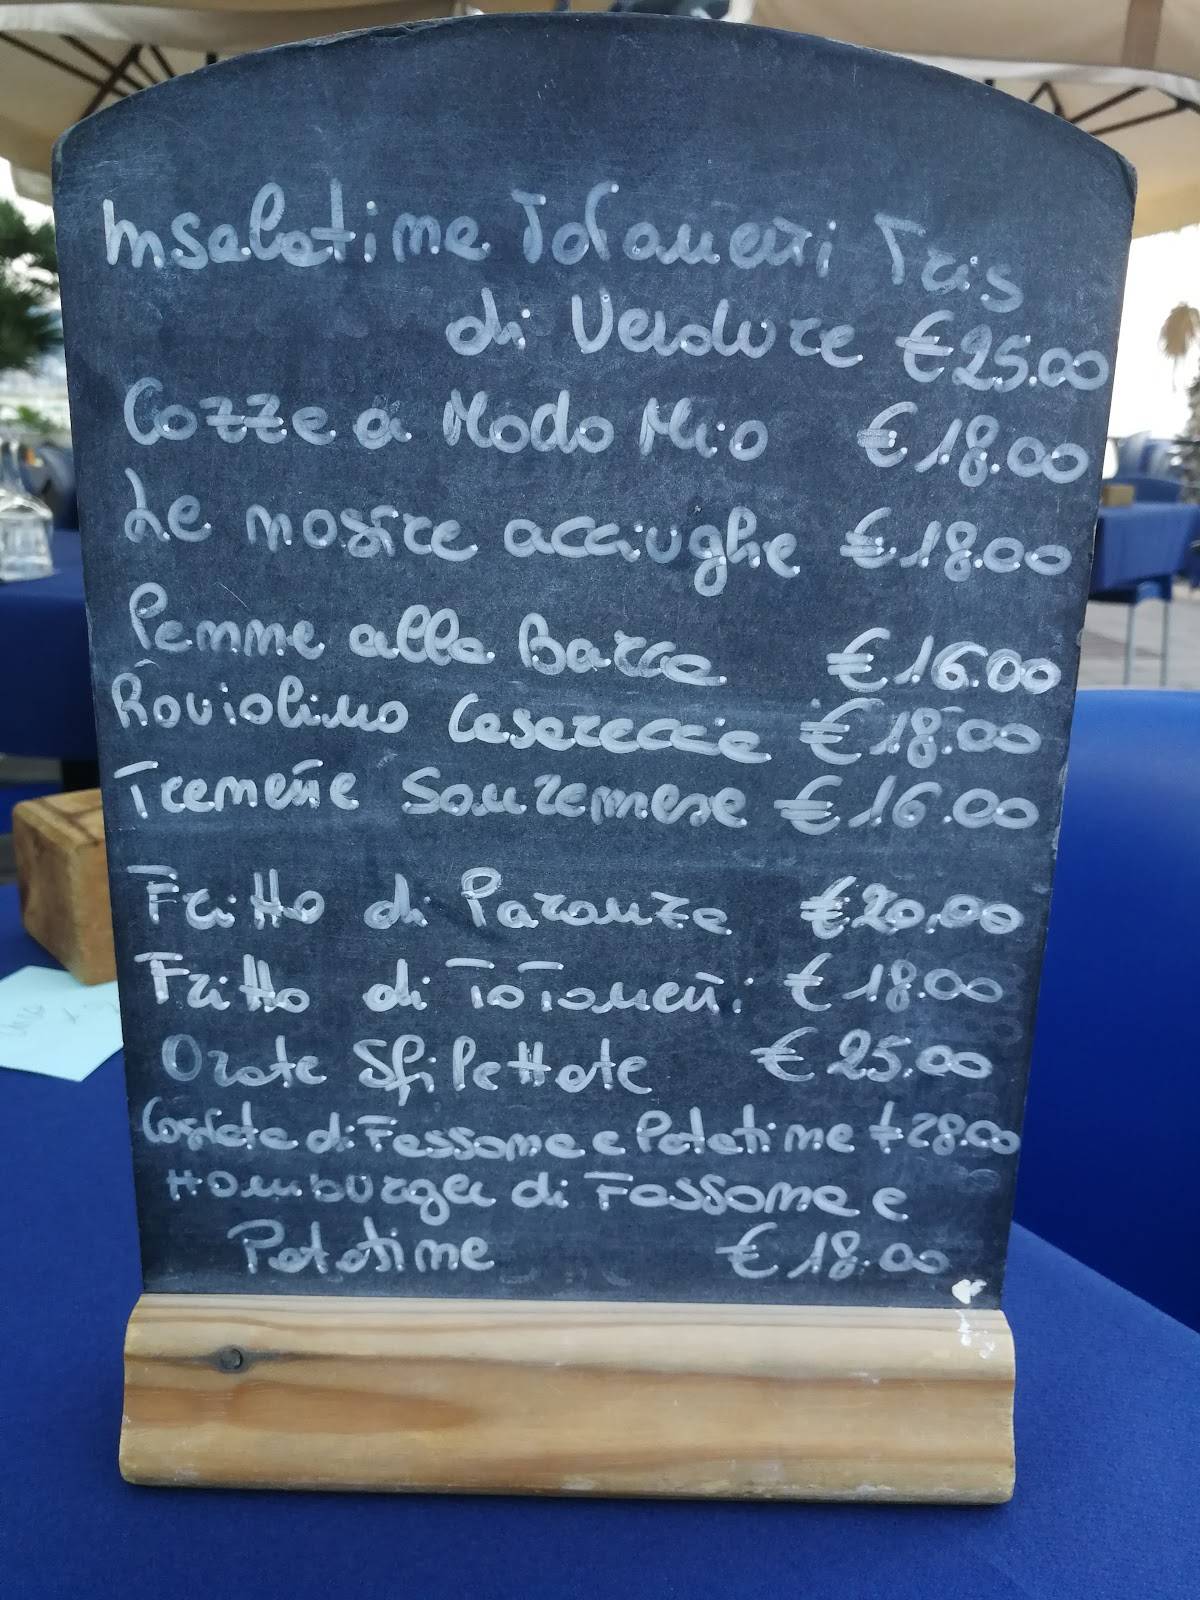 Insalatine Totanetti Tris
di Verdure €25.00
Cozze a Modo Mio €18.00
Le nostre acciughe €18.00
Penne alla Barca €16.00
Raviolino Casereccie €18.00
Trenette Sanremese €16.00
Fritto di Paranza €20.00
Fritto di Totanetti €18.00
Orata Sfilettata €25.00
Costata di Fassona e Patatine €28.00
Hamburger di Fassona e
Patatine €18.00